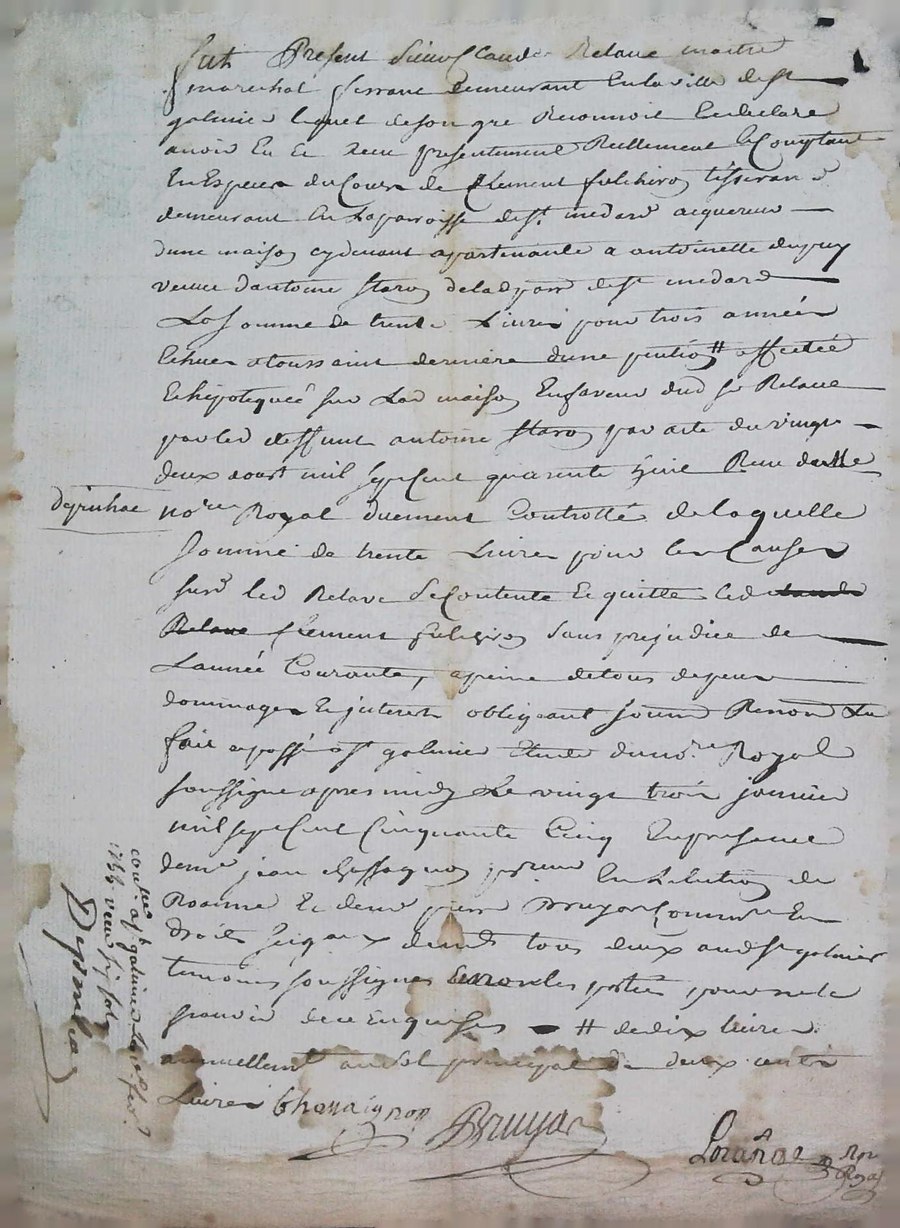 fut Present sieur Claude Relave maitre
marechal ferrant demeurant En la ville de st
galmier lequel de son gré Reconnoit Et declare
avoir Eu Et Receu presentement Reellement Et Comptant
En Especes du Cours de Clement fulchiron tisseran
demeurant En La parroisse de st medard acquereur
dune maison cy devant apartenante a antoinette dupuy
veuve dantoine staron de lad parr de st medard
La somme de trente Livres pour trois années
Echues a toussaint derniere dune pention # affectée
Et hipotequée sur Lad maison En faveur dud sr Relave
par led deffunt antoine staron par acte du vingt
deux aoust mil sept Cent quarente Reçu
nore Royal duement Controllé de laquelle
somme de trente Livres pour les Causes
susd led Relave se Contente Et quitte led Claude
Relave Clement fulchiron sans prejudice de
Lannée Courante, a peine de tous depens
dommages Et interets obligeant soum Renon
fait et passé a st galmier Etude du nore Royal
soussigné apres midy Le vingt trois janvier
mil sept Cent Cinquante Cinq En presence
de me jean chassagnon En Lelection de
Roanne Et de me pierre Bruyas Commis En
droits demt tous deux aud st galmier
temoins soussignes Et non les parties pour ne le
scavoir de ce Enquises # de dix livres
annuellemt au sol principal de deux cents
Livres Chassaignon
Bruyas
nore Royal
a st galmier